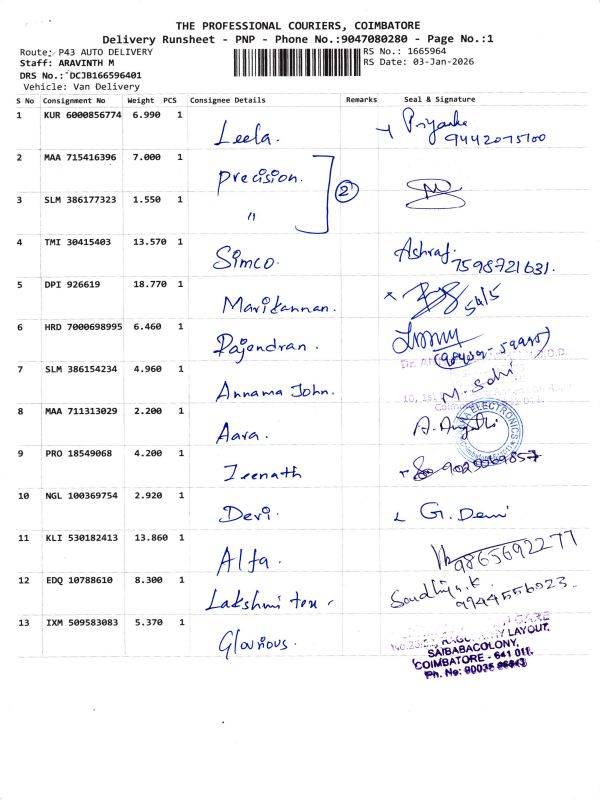 THE PROFESSIONAL COURIERS, COIMBATORE
Delivery Runsheet - PNP - Phone No.:9047080280 - Page No.:1
Route: P43 AUTO DELIVERY RS No.: 1665964
Staff: ARAVINTH M RS Date: 03-Jan-2026
DRS No.: DCJB166596401
Vehicle: Van Delivery
S No Consignment No Weight PCS Consignee Details Remarks Seal & Signature
1 KUR 6000856774 6.990 1 Leela. Priyanka
9442075700
2 MAA 715416396 7.000 1 Precision.
2
3 SLM 386177323 1.550 1 "
4 TMI 30415403 13.570 1 Simco. Ashraf.
7598721631.
5 DPI 926619 18.770 1 Marikannan.
6 HRD 7000698995 6.460 1 Rajendran.
7 SLM 386154234 4.960 1 Annama John. M. Sohi
8 MAA 711313029 2.200 1 Aara. A.
ELECTRONICS
9 PRO 18549068 4.200 1 Zeenath
10 NGL 100369754 2.920 1 Devi. G. Devi
11 KLI 530182413 13.860 1 Alfa. 9865692277
12 EDQ 10788610 8.300 1 Lakshmi tex. Sandhiya.K
9944556023.
13 IXM 509583083 5.370 1 Glorious. CARE
LAYOUT,
SAIBABACOLONY,
COIMBATORE - 641 011.
Ph. No: 90035